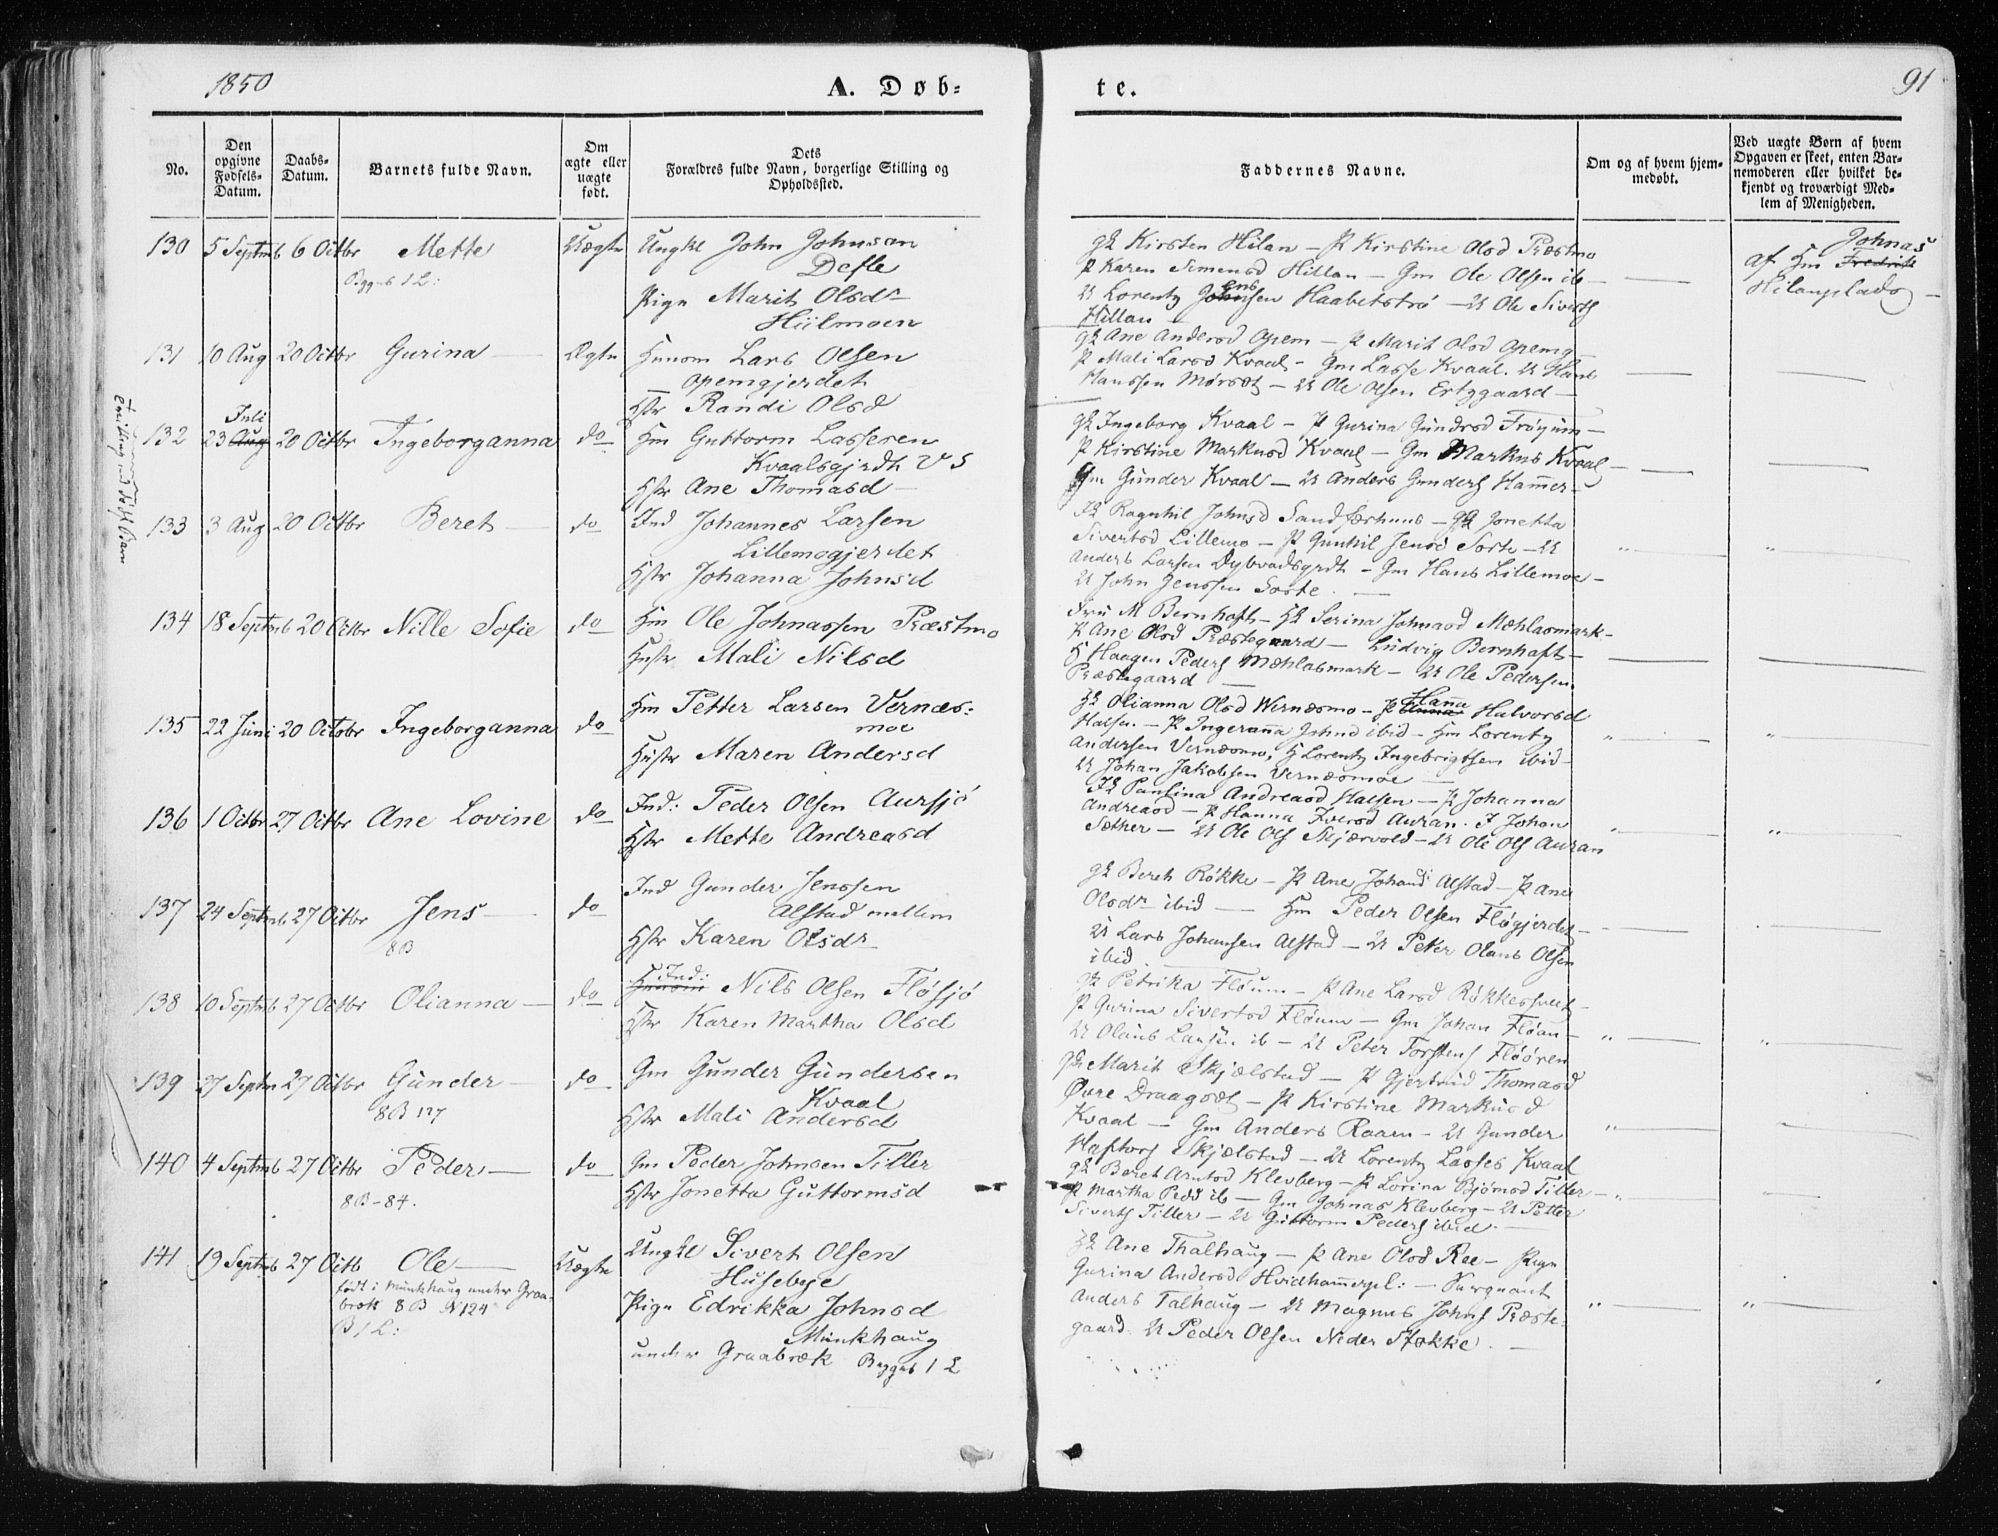 1850
A. Døb-
te.
91
No.
Den opgivne Fødsels-Datum.
Daabs-Datum.
Barnets fulde Navn.
Om ægte eller uægte født.
Dets
Forældres fulde Navn, borgerlige Stilling og Opholdssted.
Faddernes Navne.
Om og af hvem hjemmedøbt.
Ved uægte Børn af hvem Opgaven er skeet, enten Barnemoderen eller hvilket bekjendt og troværdigt Medlem af Menigheden.
130 5 Septmb 6 Octbr Mette Uægte Ungkl John Johnsan
Defle
Bygnb 1 L:
Pign Marit Olsdr
Hiilmoen
gk Kirsten Hilan — P Kirstine Olsd Præstmo
P Karen Simensd Hillan — Gm Ole Olsen ib —
U Lorentz Johnsen Haabetstrø — U Ole Siverts
Hillan
Johnas
af Hm Fredrik
Hilanplads —
131 10 Aug 20 Octbr Gurina — Ægte Huusm Lars Olsen
Opemgjerdet
Hstr Randi Olsd
gk Ane Andersd Opem — P Marit Olsd Opemg
P Mali Larsd Kvaal — Gm Lasse Kvaal. U Hans
Hanssen Mørset — U Ole Olsen Ertzgaard —
Juli
132 23 Aug 20 Octbr Ingeborganna do Hm Guttorm Lassesen
Kvaalsgjrdt V S
Hstr Ane Thomasd —
gk Ingeborg Kvaal — P Gurina Gundrsd Frøyum —
P Kirstine Markusd Kvaal — Gm Markus Kvaal —
Gm Gunder Kvaal — U Anders Gunders Hammer —
133 3 Aug 20 Octbr Beret — do Ind Johannes Larsen
Lillemogjerdet
Hstr Johanna Johnsd
Ik Ragnhil Johnsd Sandfærhus — gk Jonetta
Sivertsd Lillemo — P Gunhil Jensd Sorte — U
Anders Larsen Dybvadsgrdt — Gm Hans Lillemoe —
U John Jenssen Sorte. —
134 18 Septmb 20 Octbr Nille Sofie do Hm Ole Johnassen Præstmo
Hustr Mali Nilsd
Fru M Bernhoft — Hk Serina Johnasd Mæhlasmark —
P Ane Olsd Præstegaard — Ludvig Bernhoft —
H Haagen Peders Mæhlasmark — U Ole Pedersen
Præstegaard —
135 22 Juni 20 Octobr Ingeborganna do Hm Petter Larsen Vernæs-
moe
Hustr Maren Andersd
Hk Olianna Olsd Wernæsmo — P Anna Hanna Halvorsd
Halsen — P Ingeranna Johnsd ibid — Hm Lorentz
Andersen Vernæsmo, H Lorentz Ingebrigtsen ibid —
U Johan Jakobsen Vernæsmoe —
136 1 Octbr 27 Octbr Ane Lovine do Ind: Peder Olsen Aursjø
Hstr Mette Andreasd
Ik Paulina Andreasd Halsen — P Johanna
Andreasd — P Hanna Iversd Auran. I Johan
Sæther — U Ole Ols Skjærvold — U Ole Ols Auran
137 24 Septmb 27 Octbr Jens — do Ind Gunder Jenssen
Alstad mellem
8B
Hstr Karen Olsdr
gk Bereth Røkke — P Ane Johansd Alstad — P Ane
Olsdr ibid — Hm Peder Olsen Fløgjerdet —
U Lars Johansen Alstad — U Peter Olaus Olsen
ibid
138 10 Septmb 27 Octbr Olianna — do Huusm Ind: Nils Olsen Fløsjø
Hstr Karen Martha Olsd
gk Petrika Fløum — P Ane Larsd Røkkeshvet —
P Gurina Sivertsd Fløum — Gm Johan Fløan —
U Olaus Larsen ib — U Peter Torstens Fløøren
139 27 Septm 27 Octbr Gunder — do Gm Gunder Gundersen
Kvaal
8B 127
Hstr Mali Andersd
gk Marit Skjælstad — P Gjertrud Thomasd
Øvre Draagset — P Kirstine Markusd
Kvaal — Gm Anders Raaen — U Gunder
Haftors Skjelstad — U Lorentz Lasses Kvaal
140 4 Septmb 27 Octbr Peder — do Gm Peder Johnsen Tiller
8B — 84.
Hstr Jonetta Guttormsd
gk Beret Arntsd Klevberg — P Lorina Bjørnsd Tiller —
P Martha Pedsd ib — Gm Johnas Klevberg — U Petter
Siverts Tiller — U Guttorm Peders ibid. —
141 19 Septmb 27 Octb Ole — Uægte Ungkl Sivert Olsen
Husebye
født i Munkhaug under Graa-
bræk 8B N 124
B 1 L:
Pign Edrikka Johnsd
Munkhaug
under Graabræk Bygnb 1 L
Hk Ane Thalhaug — P Ane Olsd Ree — Pign
Gurina Andersd Hvidhammerpl: — Sergeant
Anders Talhaug — U Magnus Johns Præste-
gaard. U Peder Olsen Neder Stokke. —